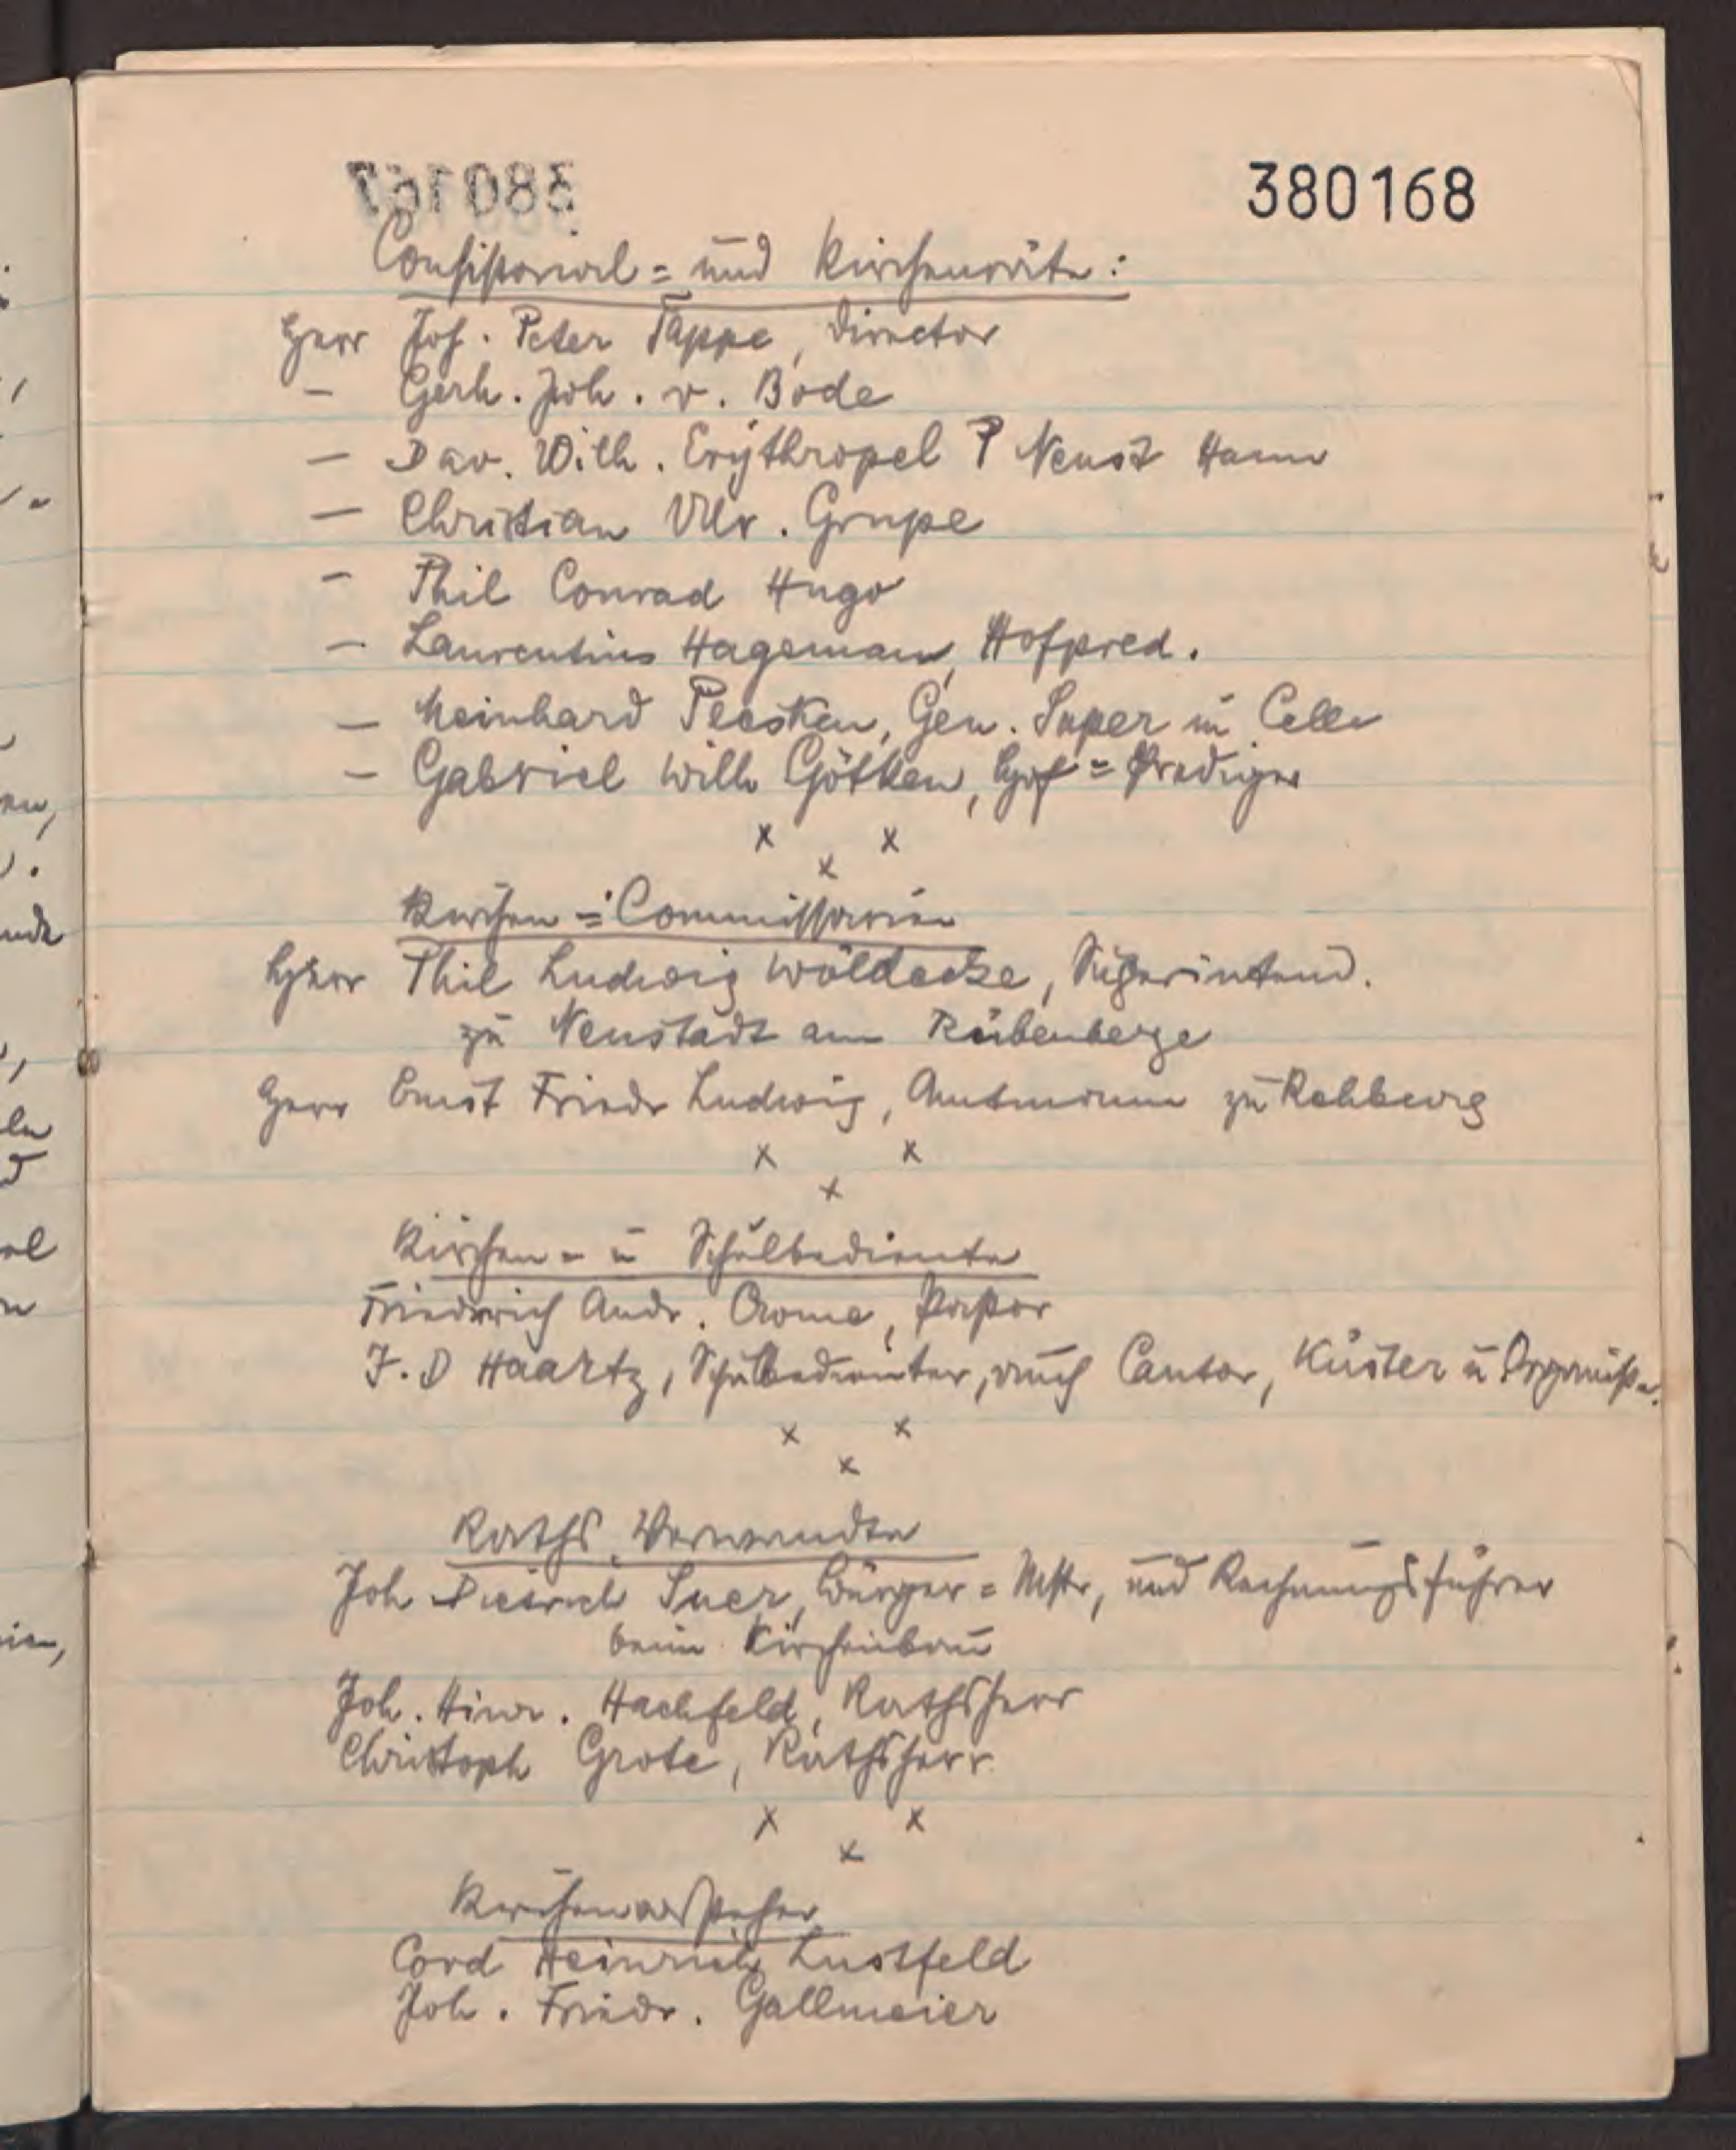 380167
380168
Consistorial = und Kirchenräte:
Herr Joh. Peter Tappe, Director
- Gerh. Joh. v. Bode
- Dav. Wilh. Erythropel P Neust Hann
- Christian Ulr. Grupe
- Phil Conrad Hugo
- Laurentius Hageman, Hofpred.
- Meinhard Plesken, Gen. Super in Celle
- Gabriel Wilh Götten, Hof = Prediger
x x
x
Kirchen = Commissarien
Herr Phil Ludwig Wöldecke, Superintend.
zu Neustadt am Rübenberge
Herr Ernst Friedr Ludwig, Amtmann zu Rehburg
x x
x
Kirchen - u Schulbediente
Friedrich Andr. Crome, Pastor
J. D Haartz, Schulbedienter, auch Cantor, Küster u Organist.
x x
x
Raths Verwandte
Joh Dietrich Suer, Bürger = Mstr, und Rechnungsführer
beim Kirchenbau
Joh. Hinr. Hachfeld, Rathsherr
Christoph Grote, Rathsherr
x x
x
Kirchenvorsteher
Cord Heinrich Lustfeld
Joh. Friedr. Gallmeier